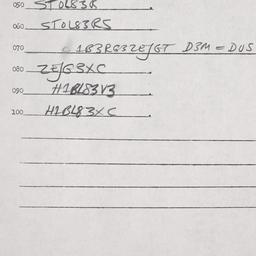 050 STOL83R
060 STOL83RS
070 1B3RG3ZEJGT D3M = DUS
080 ZEJG3XC
090 H1BL83V3
100 H1BL83XC